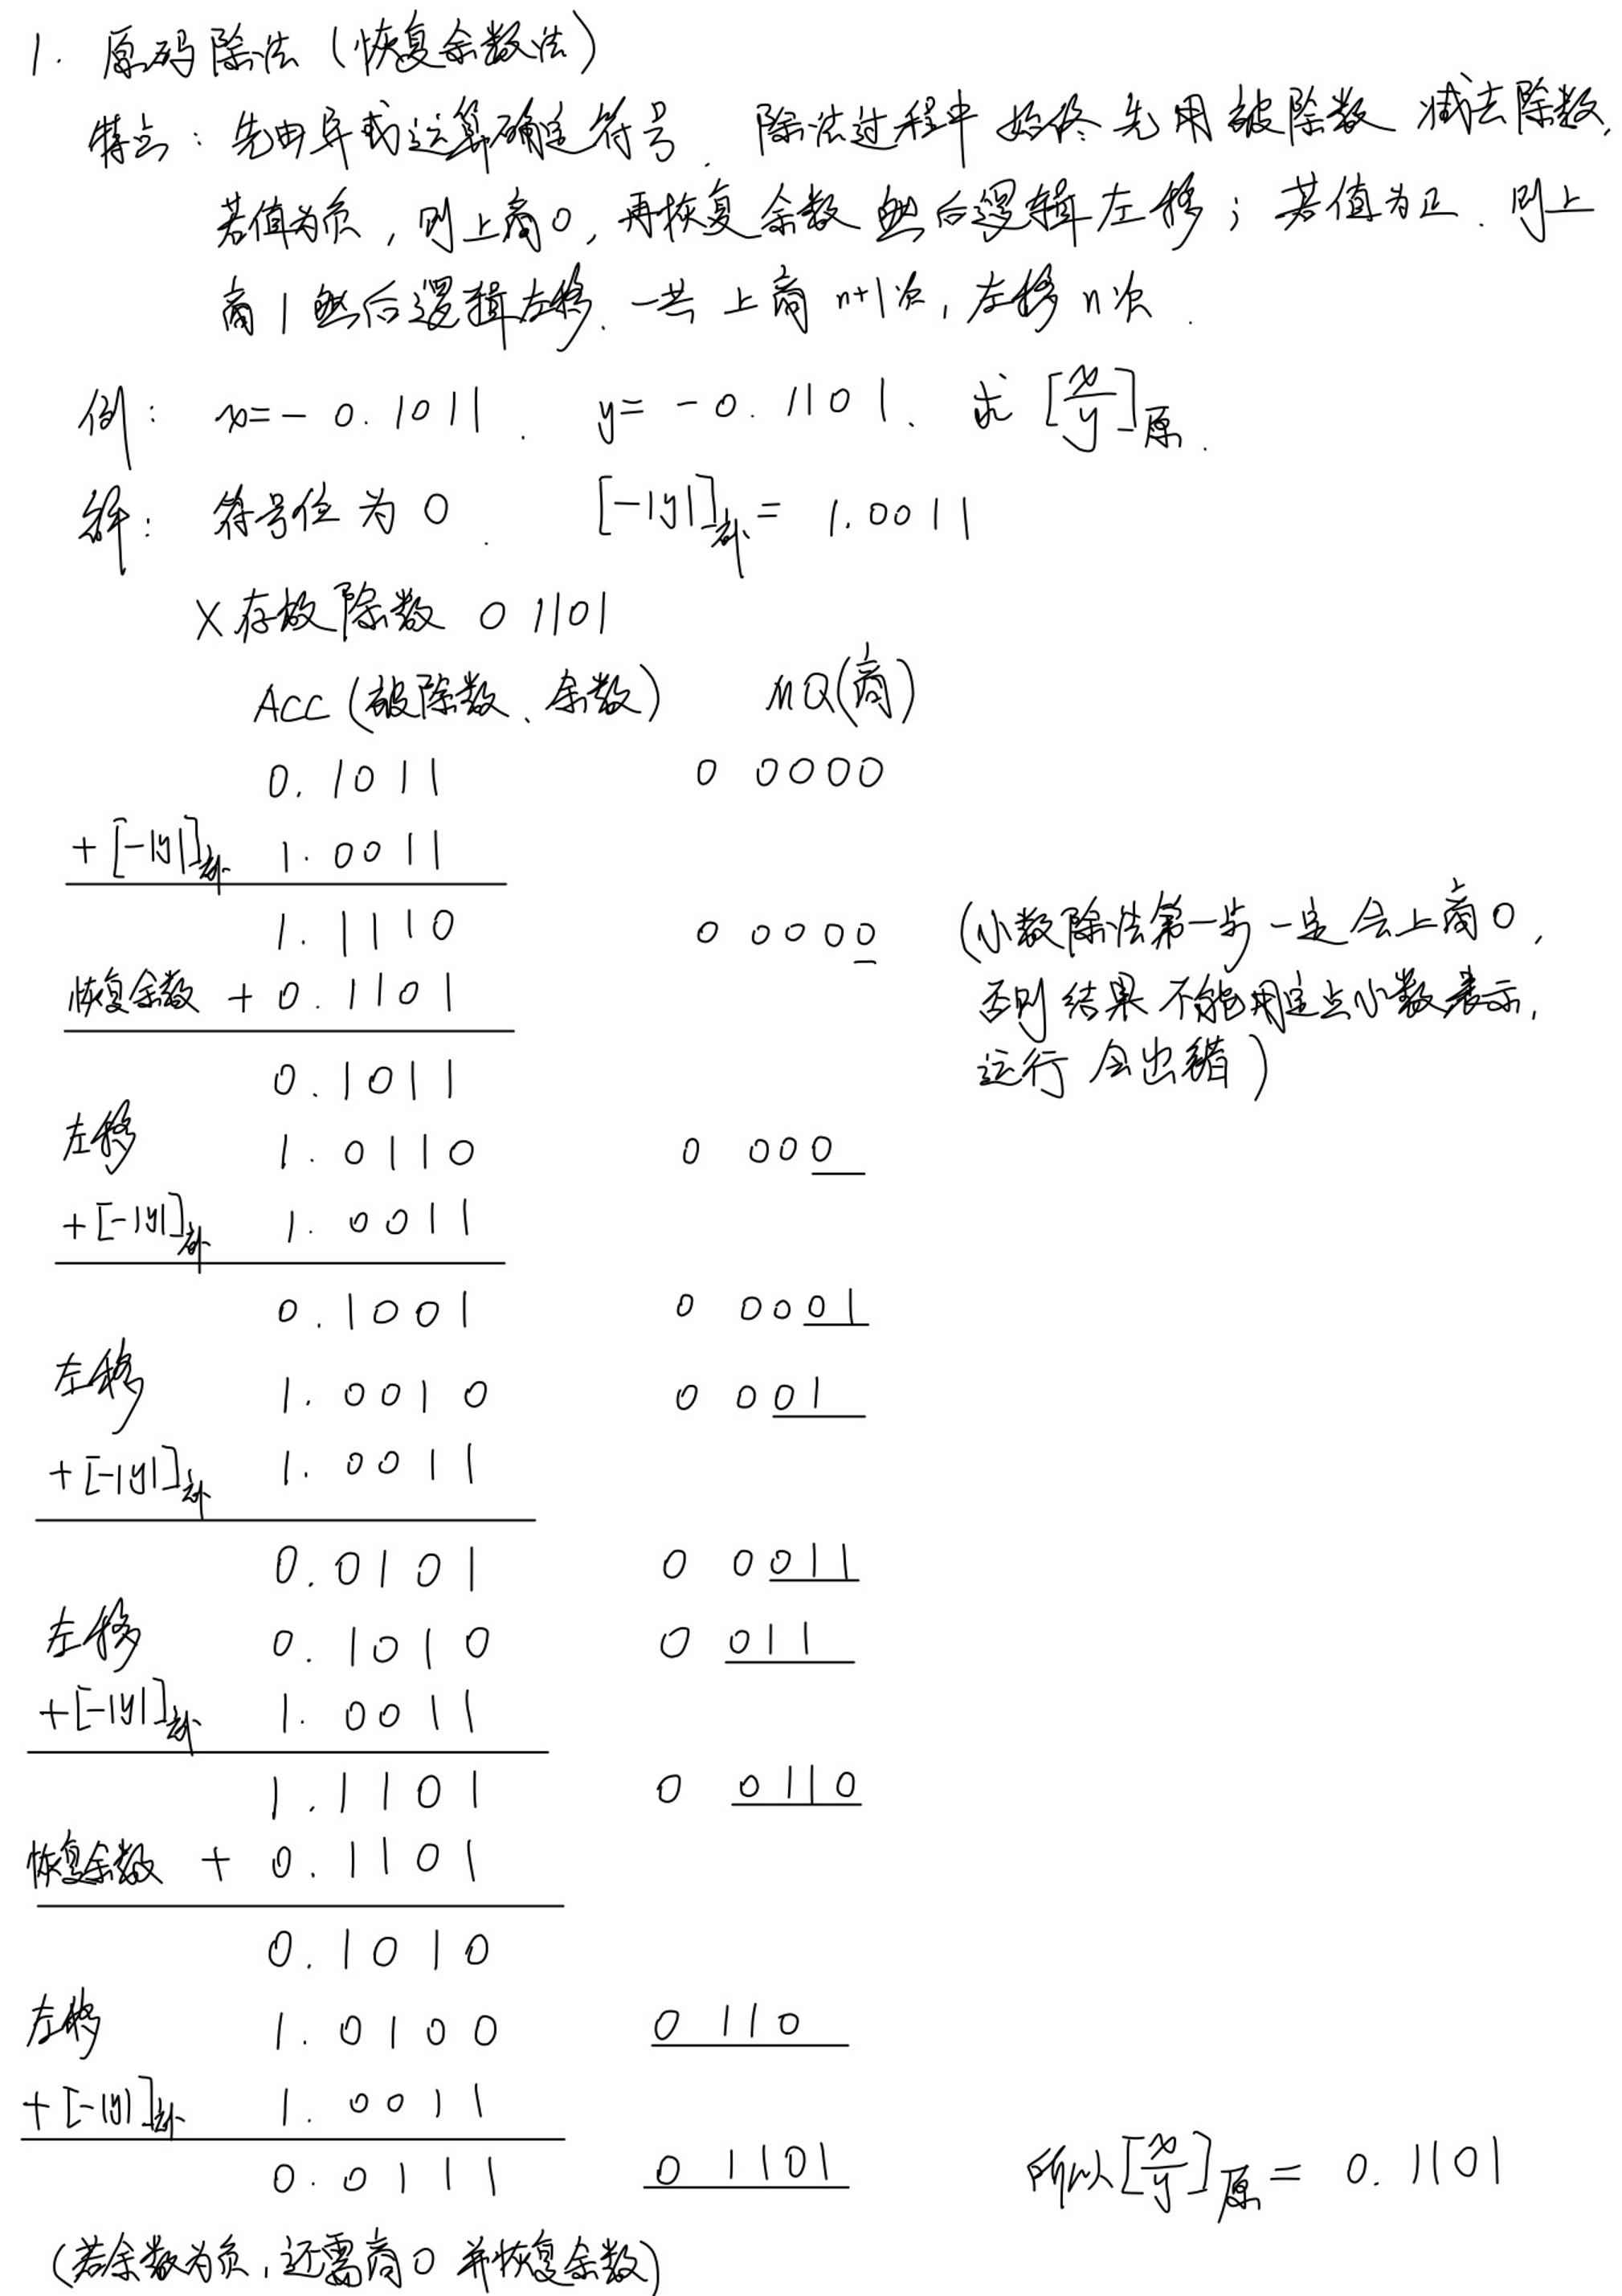 1. 原码除法（恢复余数法）
特点：先由异或运算确定符号．除法过程中始终先用被除数减去除数，
若值为负，则上商0，再恢复余数然后逻辑左移；若值为正．则上
商1然后逻辑左移．一共上商n+1次，左移n次．
例： x=-0.1011． y=-0.1101． 求[x/y]原．
解： 符号位为0． [-|y|]补= 1.0011
X存放除数 0 1101
ACC（被除数、余数） MQ（商）
0.1011 0 0000
+[-|y|]补 1.0011
1.1110 0 0000 （小数除法第一步一定会上商0，
恢复余数 + 0.1101 否则结果不能用定点小数表示，
0.1011 运行会出错）
左移 1.0110 0 000
+[-|y|]补 1.0011
0.1001 0 0001
左移 1.0010 0 001
+[-|y|]补 1.0011
0.0101 0 0011
左移 0.1010 0 011
+[-|y|]补 1.0011
1.1101 0 0110
恢复余数 + 0.1101
0.1010
左移 1.0100 0 110
+[-|y|]补 1.0011
0.0111 0 1101 所以[x/y]原= 0.1101
（若余数为负，还需商0并恢复余数）